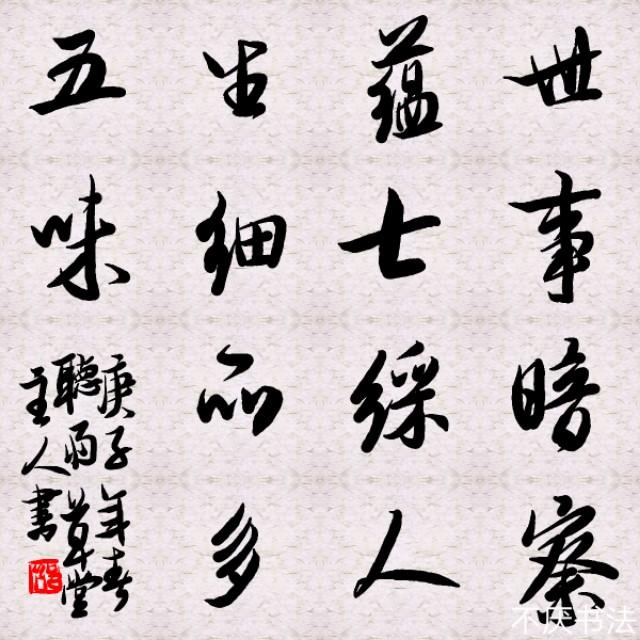 世事暗察
蕴七綵人
生细品多
五味
庚子年春
聽雨草堂
主人書
不厌书法